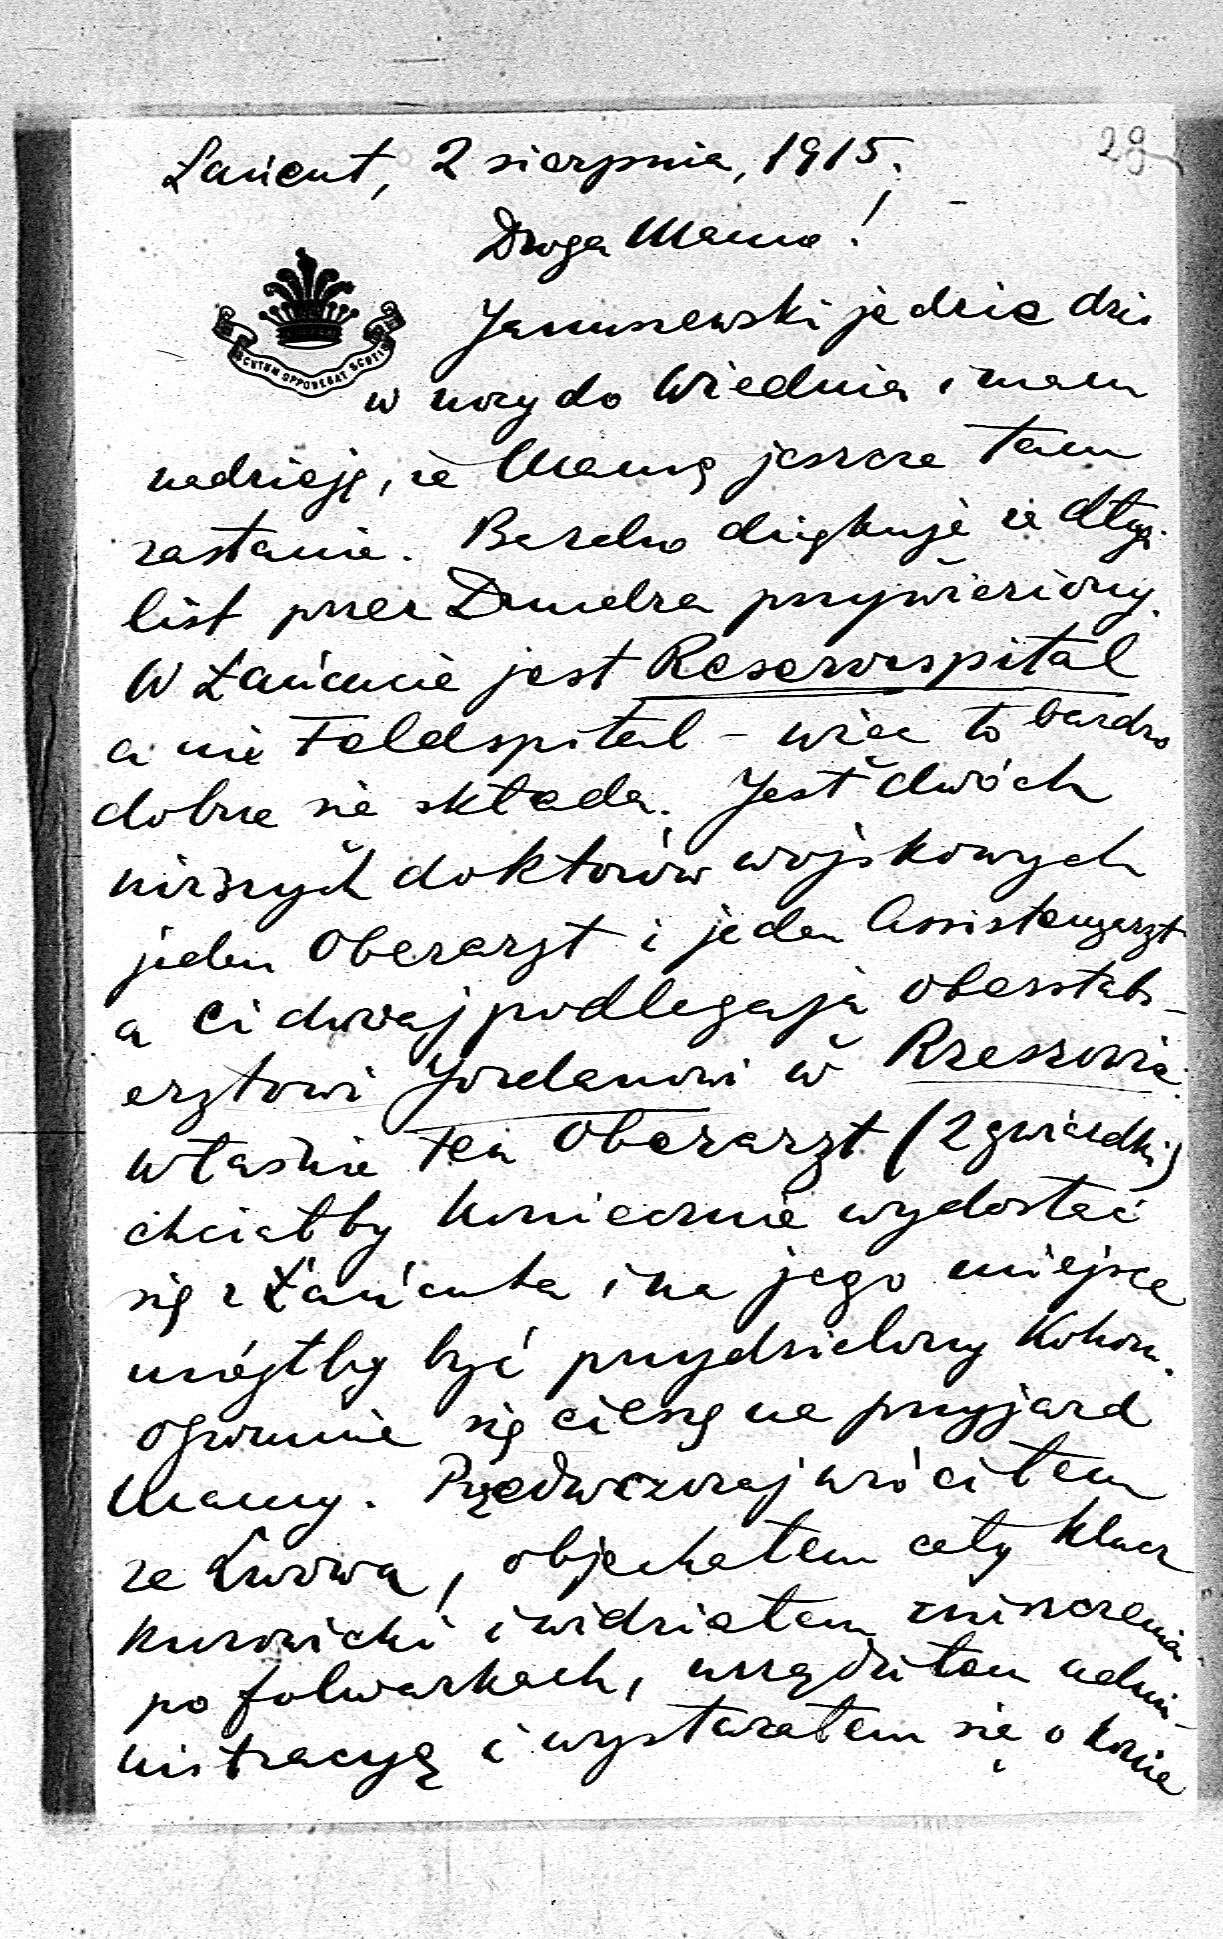 Łańcut, 2 sierpnia, 1915.
29
Droga Mamo!
SCUTUM OPPONEBAT SCUTIS
Januszewski jedzie dziś
w nocy do Wiednia i mam
nadzieję, że Mamę jeszcze tam
zastanie. Bardzo dziękuję za długi
list przez Dmudra przywieziony.
W Łańcucie jest Reservespital
a nie Feldspital - więc to bardzo
dobrze się składa. Jest dwóch
niższych doktorów wojskowych
jeden Oberarzt i jeden Assistenzarzt
a ci dwaj podlegają Oberstabs-
arztowi Jordanowi w Rzeszowie.
Właśnie ten Oberarzt (2 gwiazdki)
chciałby koniecznie wydostać
się z Łańcuta i na jego miejsce
mógłby być przydzielony Kohom.
Ogromnie się cieszę na przyjazd
Mamy. Przedwczoraj wróciłem
ze Lwowa, objechałem cały klucz
kurowicki i widziałem zniszczenia
po folwarkach, urządziłem admi-
nistracyę i wystarałem się o konie